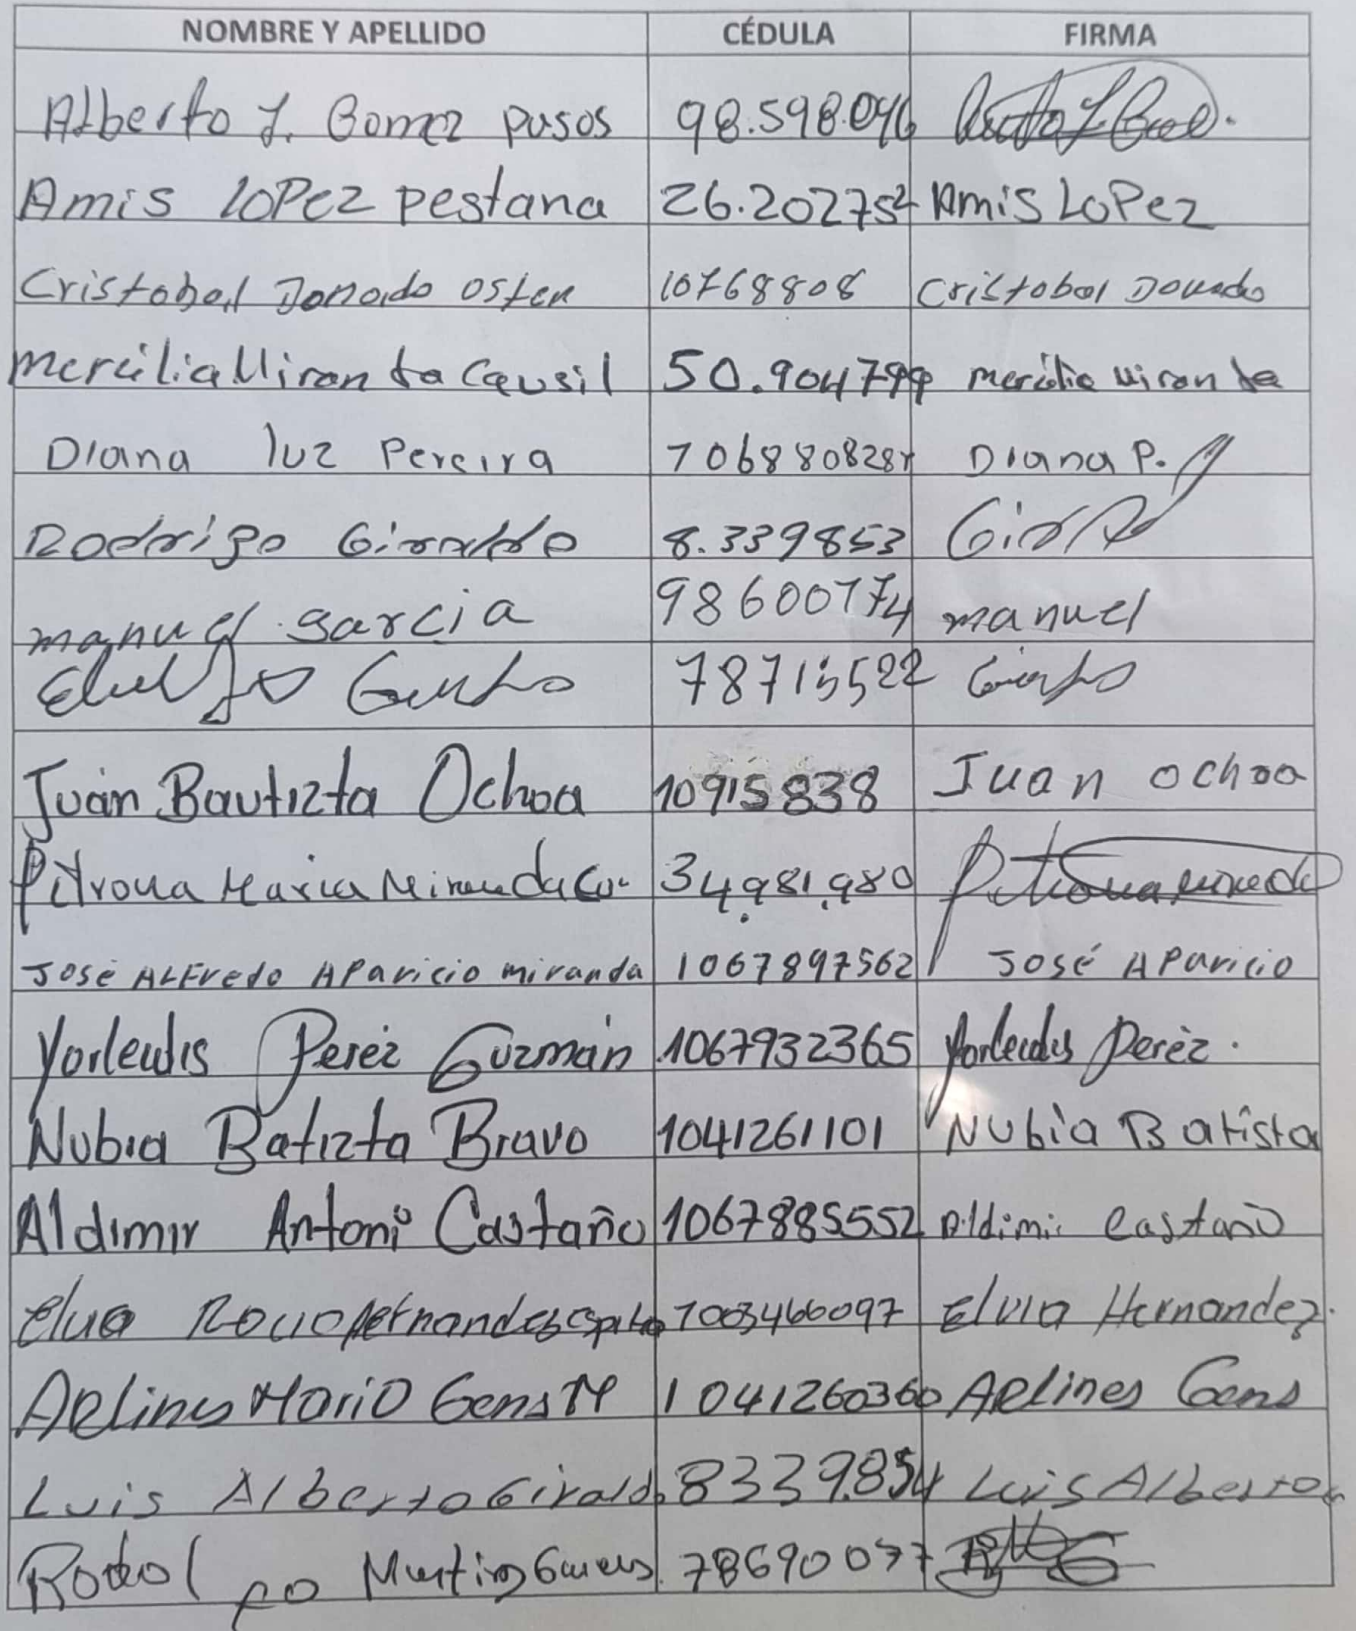 NOMBRE Y APELLIDO CÉDULA FIRMA
Alberto J. Gomez pasos 98.598.096
Amis LOPez pestana 26.202752 Amis LoPez
Cristobal Donado Osten 10768808 Cristobal Donado
Mercilia Miran da Causil 50.904799 Mercilia Miran da
Diana luz Pereira 1068808284 Diana P.
Rodrigo Giraldo 8.339853
manuel garcia 98600174 manuel
78715522
Juan Bautizta Ochoa 10915838 Juan ochoa
Petrona Maria Miranda Ca- 34.981.980 Petrona miranda
José ALFredo APARicio miranda 1067897562 José APARicio
Yorleidis Peréz Guzmán 1067932365 Yorleidis Peréz.
Nubia Batizta Bravo 1041261101 Nubia Batista
Aldimir Antoni Castaño 1067885552 Aldimir Castaño
Elvia Rocio Hernandes 1003466097 Elvia Hernandez.
Arlines Mario Gens M 1041260360 Arlines Gens
Luis Alberto Giraldo 8339.854 Luis Alberto G
Rodol fo Martinez 78690077